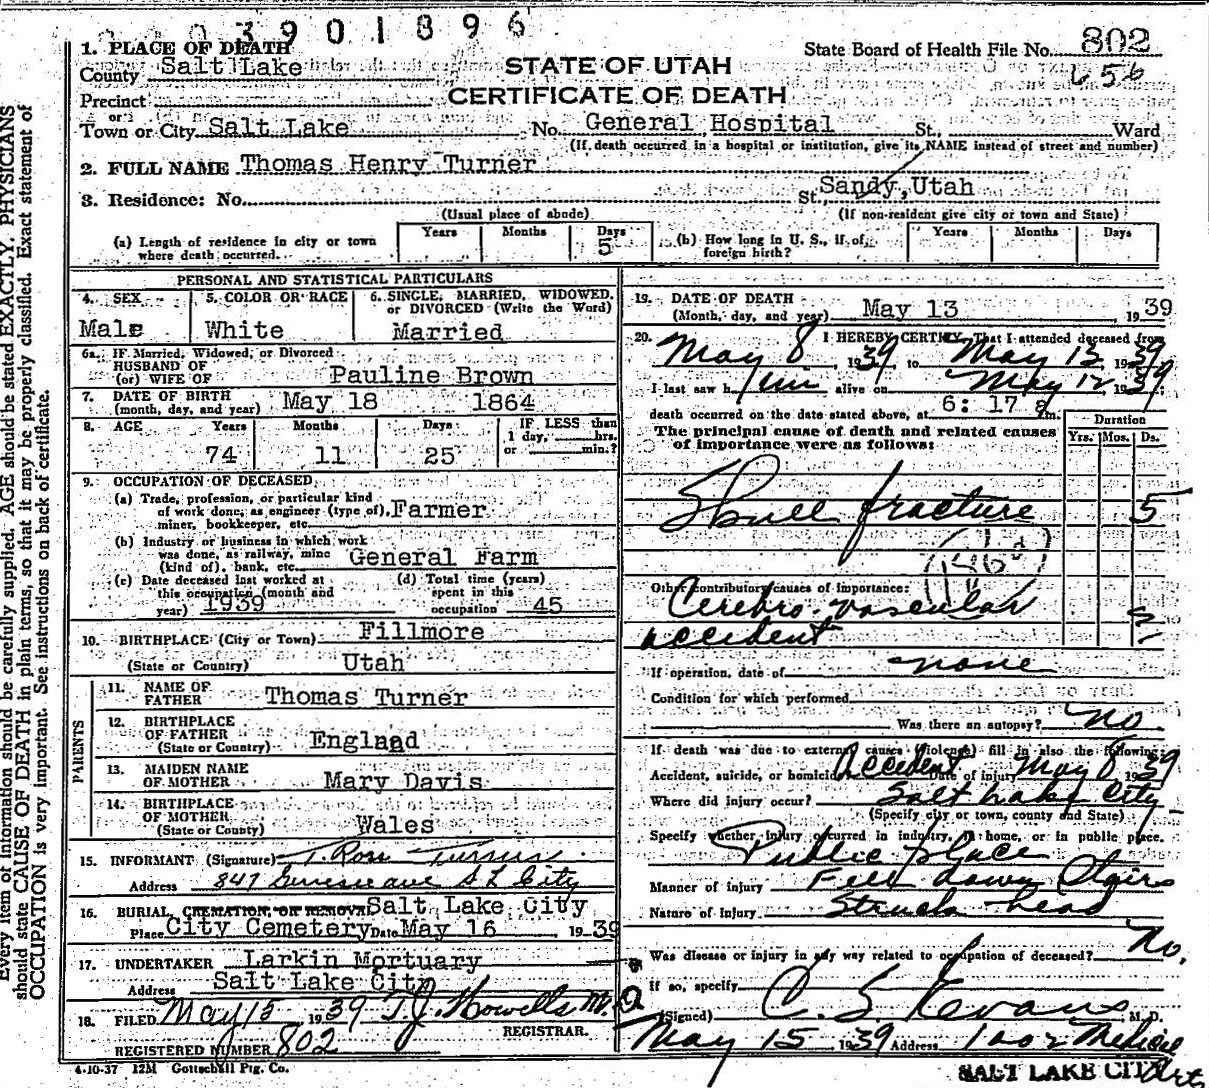 3901896
1. PLACE OF DEATH
State Board of Health File No. 802
County Salt Lake
STATE OF UTAH
656
Precinct
CERTIFICATE OF DEATH
or
Town or City Salt Lake No. General Hospital St., Ward
(If death occurred in a hospital or institution, give its NAME instead of street and number)
2. FULL NAME Thomas Henry Turner
3. Residence: No. St., Sandy, Utah
(Usual place of abode) (If non-resident give city or town and State)
(a) Length of residence in city or town where death occurred. Years Months Days 5
(b) How long in U. S., if of foreign birth? Years Months Days
PERSONAL AND STATISTICAL PARTICULARS
4. SEX 5. COLOR OR RACE 6. SINGLE, MARRIED, WIDOWED, or DIVORCED (Write the Word)
Male White Married
6a. IF Married, Widowed, or Divorced
HUSBAND OF
(or) WIFE OF Pauline Brown
7. DATE OF BIRTH
(month, day, and year) May 18 1864
8. AGE Years Months Days IF LESS than
1 day, hrs.
74 11 25 or min.?
9. OCCUPATION OF DECEASED
(a) Trade, profession, or particular kind
of work done, as engineer (type of), Farmer
miner, bookkeeper, etc.
(b) Industry or business in which work
was done, as railway, mine General Farm
(kind of), bank, etc.
(c) Date deceased last worked at (d) Total time (years)
this occupation (month and spent in this
year) 1939 occupation 45
10. BIRTHPLACE (City or Town) Fillmore
(State or Country) Utah
PARENTS
11. NAME OF
FATHER Thomas Turner
12. BIRTHPLACE
OF FATHER
(State or Country) England
13. MAIDEN NAME
OF MOTHER Mary Davis
14. BIRTHPLACE
OF MOTHER
(State or County) Wales
15. INFORMANT (Signature) T. Ross Turner
Address 847 ave S L City
16. BURIAL, CREMATION, OR REMOVAL Salt Lake City
Place City Cemetery Date May 16 1939
17. UNDERTAKER Larkin Mortuary
Address Salt Lake City
18. FILED May 15 1939 T.J. Howells M.D.
REGISTRAR.
REGISTERED NUMBER 802
4-10-37 12M Gottschall Ptg. Co.
19. DATE OF DEATH
(Month, day, and year) May 13 1939
20. I HEREBY CERTIFY, That I attended deceased from
May 8 1939, to May 13 1939
I last saw him alive on May 12 1939
death occurred on the date stated above, at 6:17 a m.
The principal cause of death and related causes
of importance were as follows:
Duration
Yrs. Mos. Ds.
Skull fracture 5
Other contributory causes of importance:
Cerebro-vascular
accident 5
If operation, date of none
Condition for which performed
Was there an autopsy? no
If death was due to external causes (violence) fill in also the following:
Accident, suicide, or homicide Accident Date of injury May 8 1939
Where did injury occur? Salt Lake City
(Specify city or town, county and State)
Specify whether injury occurred in industry, in home, or in public place.
Public place
Manner of injury Fell down Stairs
Nature of injury Struck head
Was disease or injury in any way related to occupation of deceased? No.
If so, specify
(Signed) C. S. Evans M. D.
May 15 1939 Address 1002 Medical Arts
SALT LAKE CITY
Every item of information should be carefully supplied. AGE should be stated EXACTLY. PHYSICIANS
should state CAUSE OF DEATH in plain terms, so that it may be properly classified. Exact statement of
OCCUPATION is very important. See instructions on back of certificate.